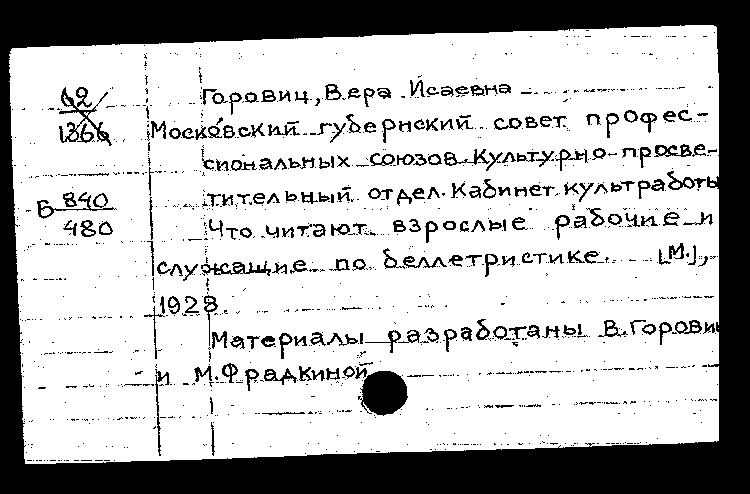 62
1366
Б 840
480
Горовиц, Вера Исаевна
Московский губернский совет профес-
сиональных союзов. Культурно-просве-
тительный отдел. Кабинет культработы
Что читают взрослые рабочие и
служащие по беллетристике. [М.],
1928.
Материалы разработаны В. Горовиц
и М. Фрадкиной